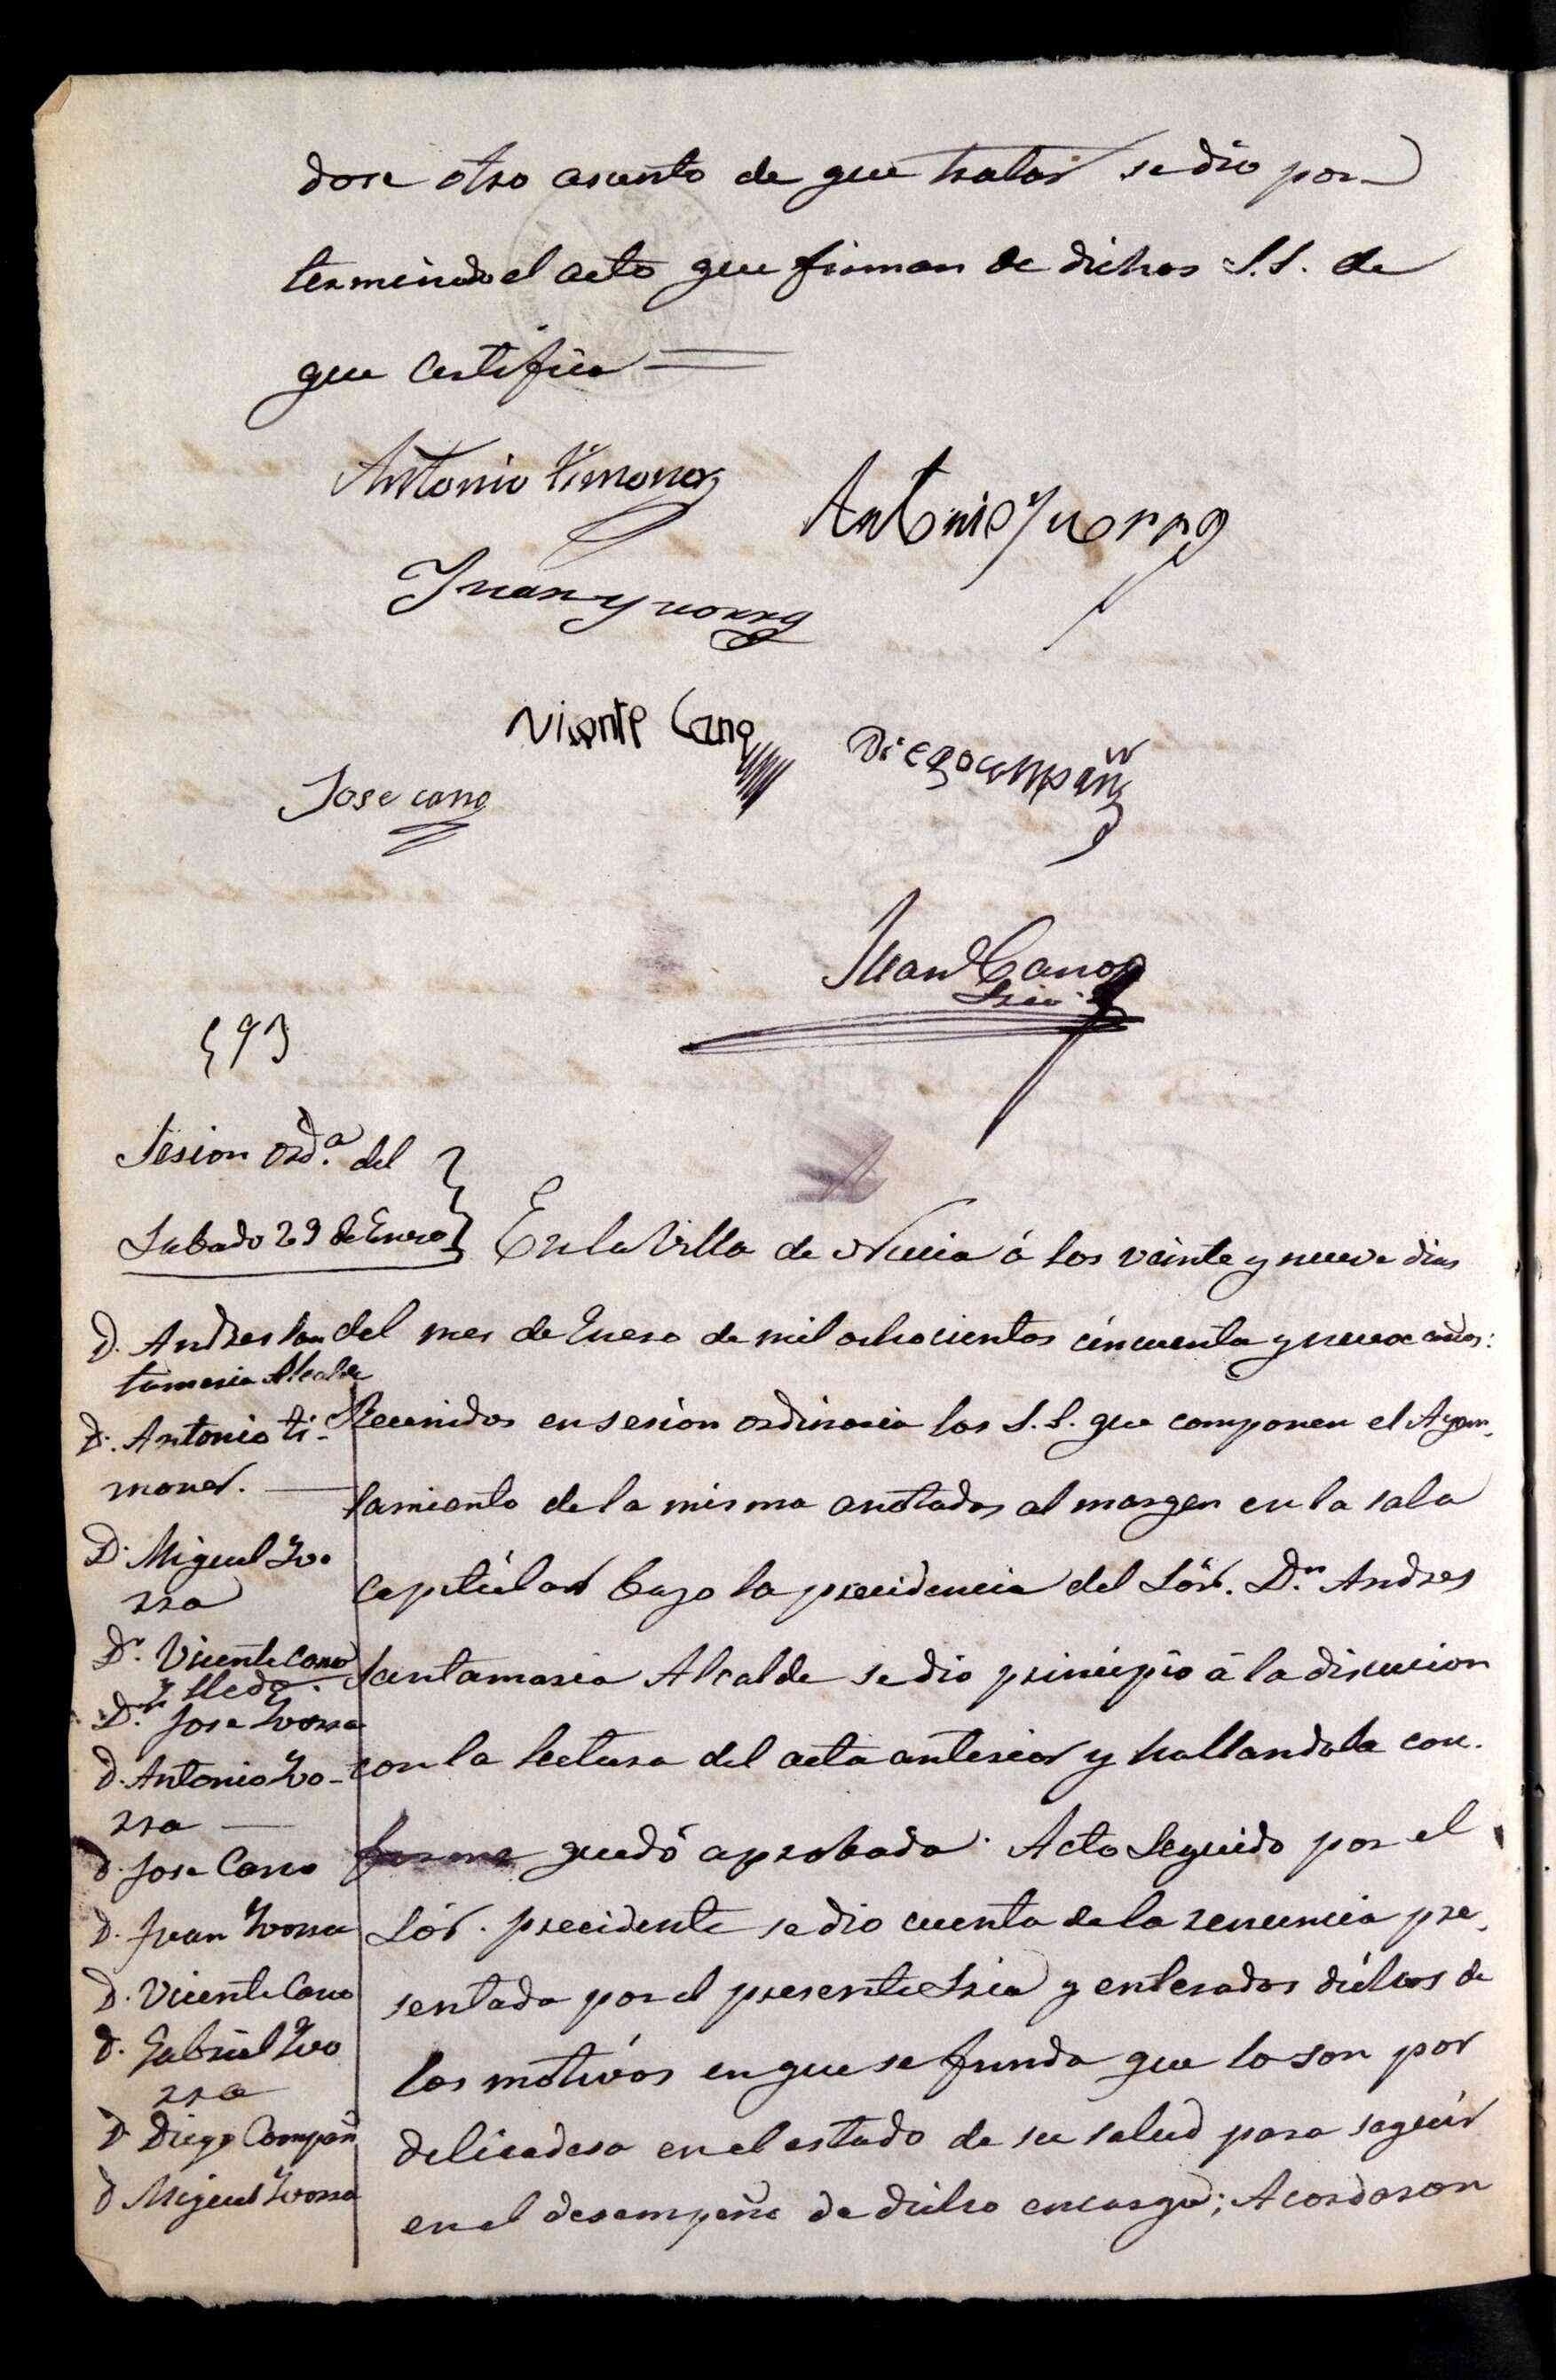 dose otro asunto de que tratar se dio por
terminado el acto que firman de dichos S.S. de
que certifico =
Antonio Timoner
Antonio Yvorra
Juan Yvorra
Vicente Cano
Diego Compañ
Jose cano
Juan Cano
Srio
Sesion Ord.ª del
Sabado 29 de Enero
D. Andres San
tamaria Alcalde
D. Antonio Ti-
moner.
D. Miguel Yvo
rra
Dn. Vicente Cano
y Lledo.
Dn. Jose Yvorra
D. Antonio Yvo-
rra
D. Jose Cano
D. Juan Yvorra
D. Vicente Cano
D. Gabriel Yvo
rra
D Diego Compañ
D Miguel Yvorra
En la Villa de Nucia á los veinte y nueve dias
del mes de Enero de mil ochocientos cincuenta y nueve años:
Reunidos en sesion ordinaria los S.S. que componen el Ayun-
tamiento de la misma anotados al margen en la sala
capitular bajo la precidencia del Sór. Dn. Andres
Santamaria Alcalde se dio principio á la discucion
con la lectura del acta anterior y hallandola con-
forme quedó aprobada. Acto Seguido por el
Sór. precidente se dio cuenta de la renuncia pre-
sentada por el presente Srio y enterados dichos de
los motivos en que se funda que lo son por
delicadesa en el estado de su salud para seguir
en el desempeño de dicho encargo; Acordaron